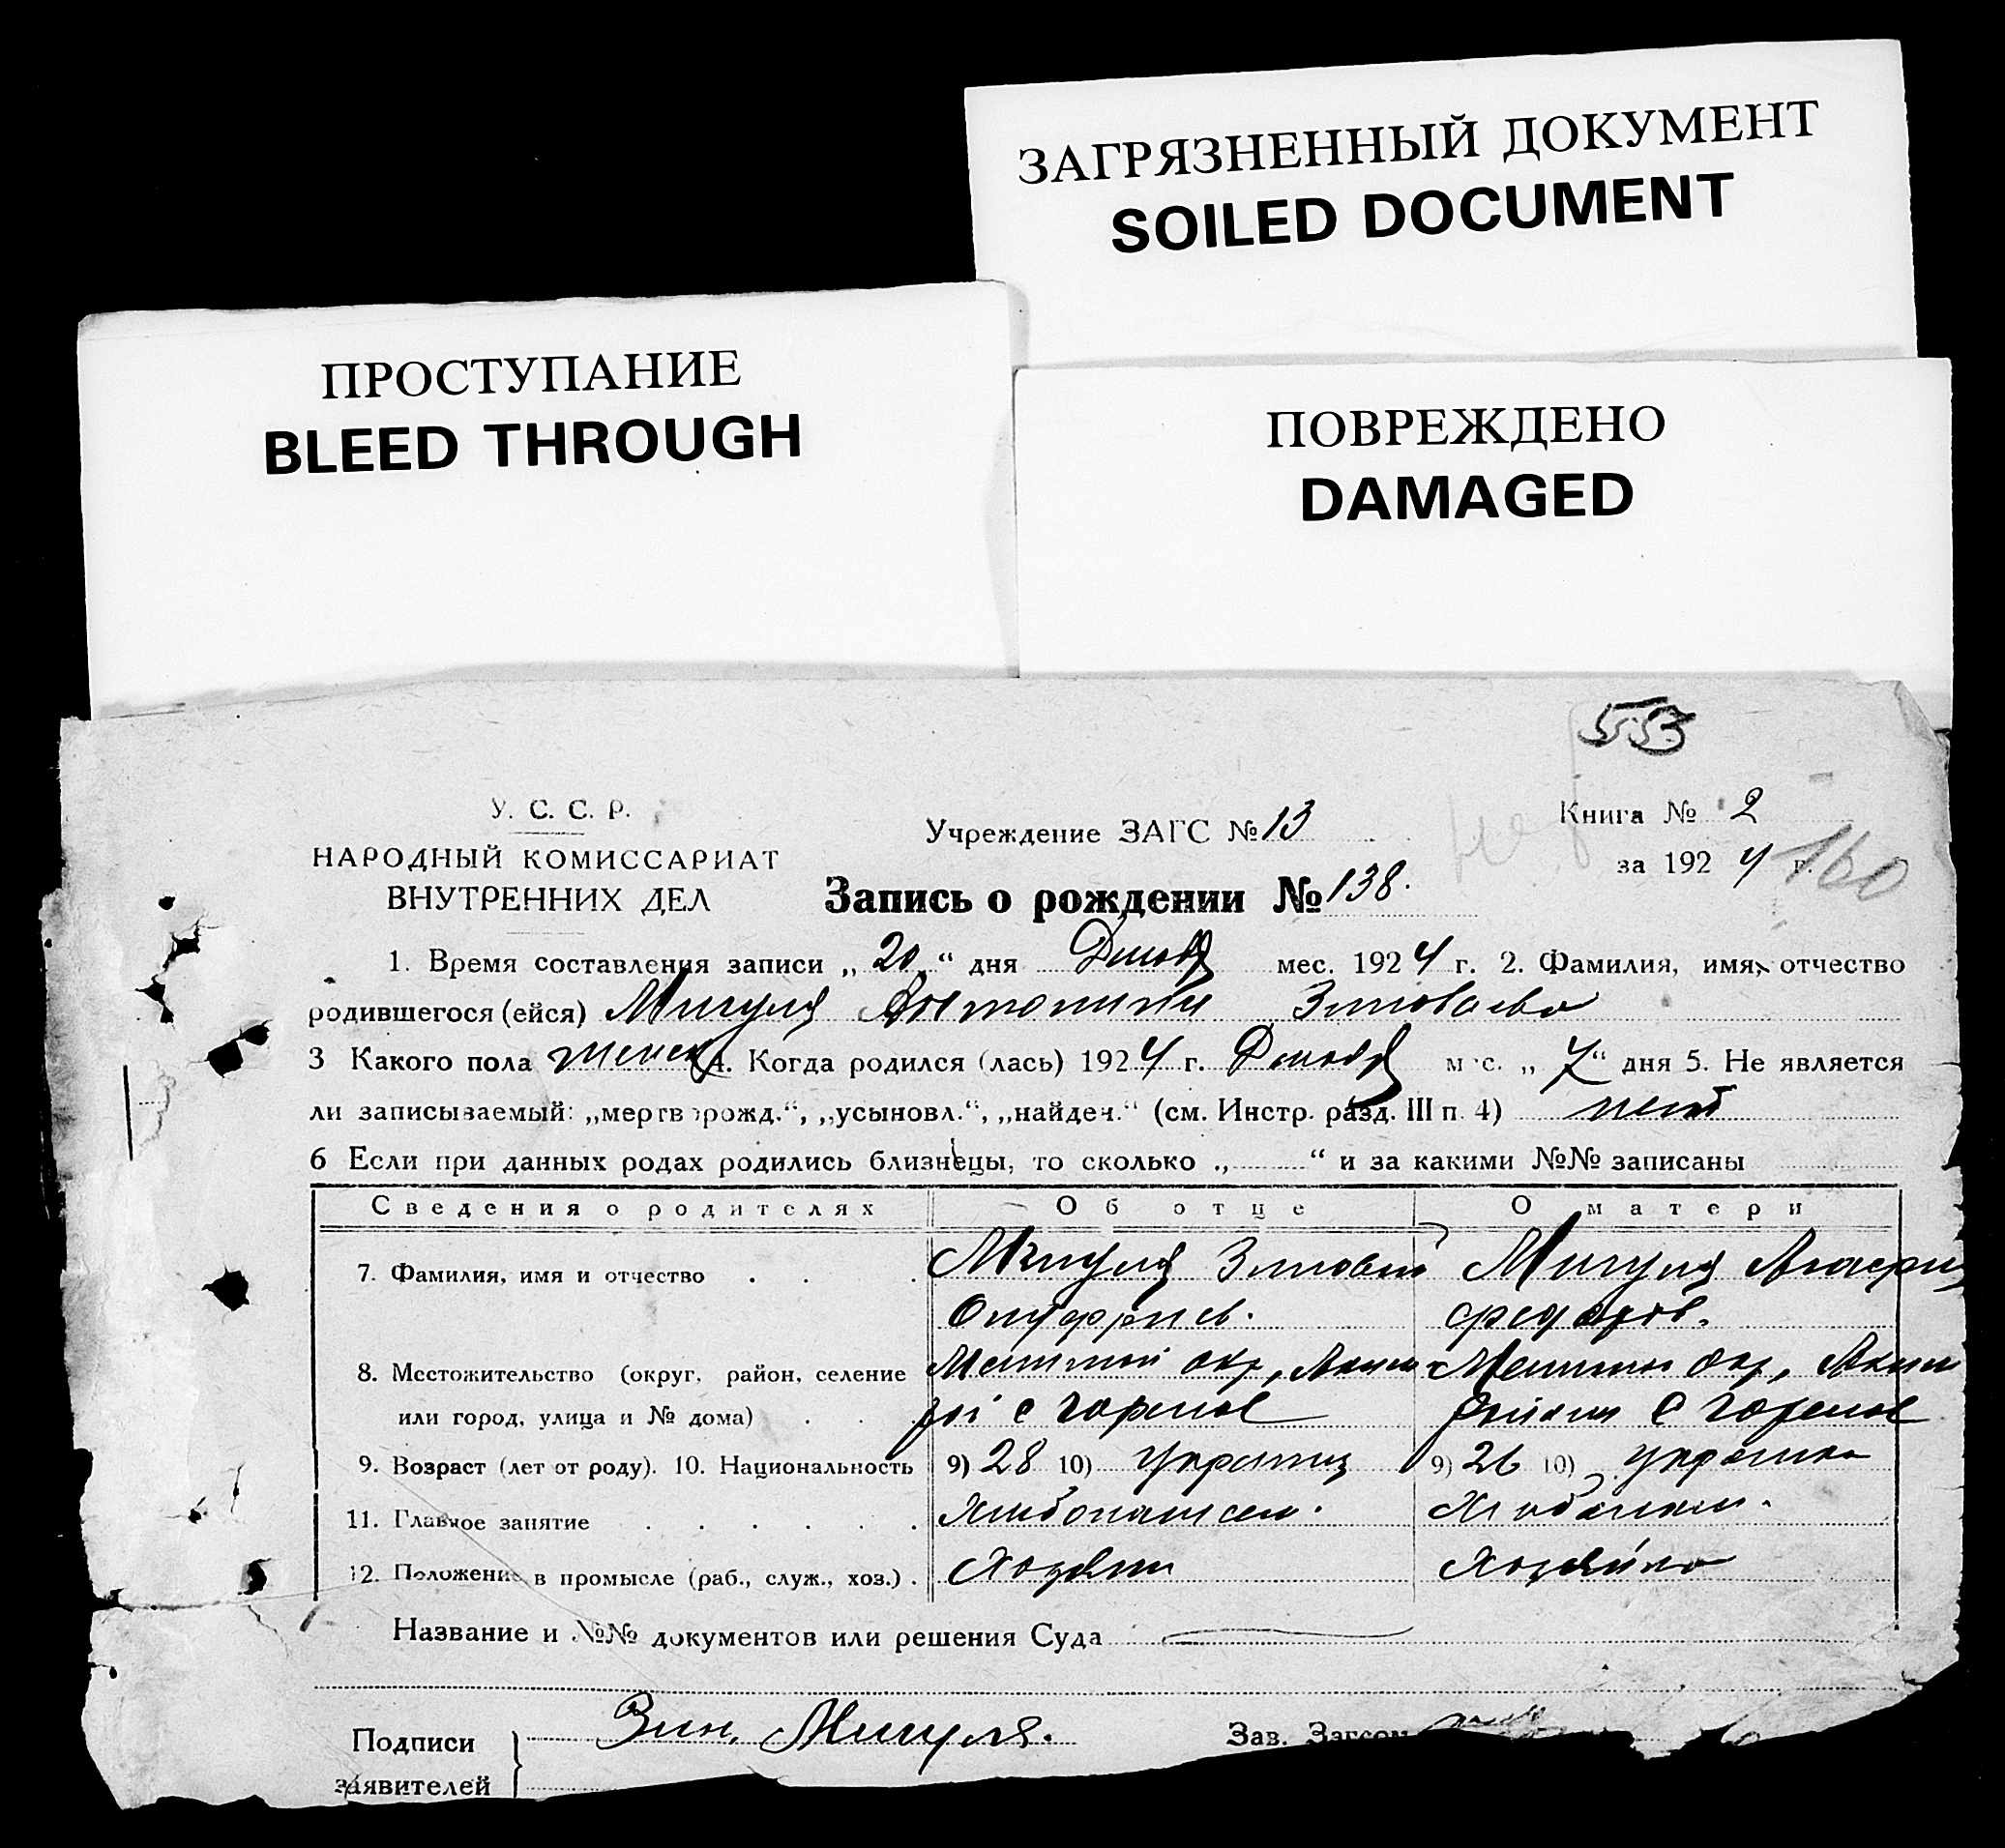 ЗАГРЯЗНЕННЫЙ ДОКУМЕНТ
SOILED DOCUMENT
ПРОСТУПАНИЕ
BLEED THROUGH
ПОВРЕЖДЕНО
DAMAGED
553
У. С. С. Р.
НАРОДНЫЙ КОМИССАРИАТ
ВНУТРЕННИХ ДЕЛ
Учреждение ЗАГС № 13
Книга № 2
за 1924 г.
160
Запись о рождении № 138.
1. Время составления записи „20“ дня мес. 1924 г. 2. Фамилия, имя, отчество
родившегося (ейся) Мигуля Антонина Зиновьева
3 Какого пола женск 4. Когда родился (лась) 1924 г. мес. „7“ дня 5. Не является
ли записываемый: „мертворожд.“, „усыновл.“, „найден.“ (см. Инстр. разд. III п. 4) нет
6 Если при данных родах родились близнецы, то сколько „ “ и за какими №№ записаны
Сведения о родителях Об отце О матери
7. Фамилия, имя и отчество Мигуля Зиновий Мигуля
Онуфриев.
8. Местожительство (округ, район, селение окр, окр,
или город, улица и № дома) с с
9. Возраст (лет от роду). 10. Национальность 9) 28 10) украинц 9) 26 10) украинка
11. Главное занятие
12. Положение в промысле (раб., служ., хоз.) Хозяин Хозяйка
Название и №№ документов или решения Суда
Подписи Зин. Мигуля. Зав. Загсом
заявителей